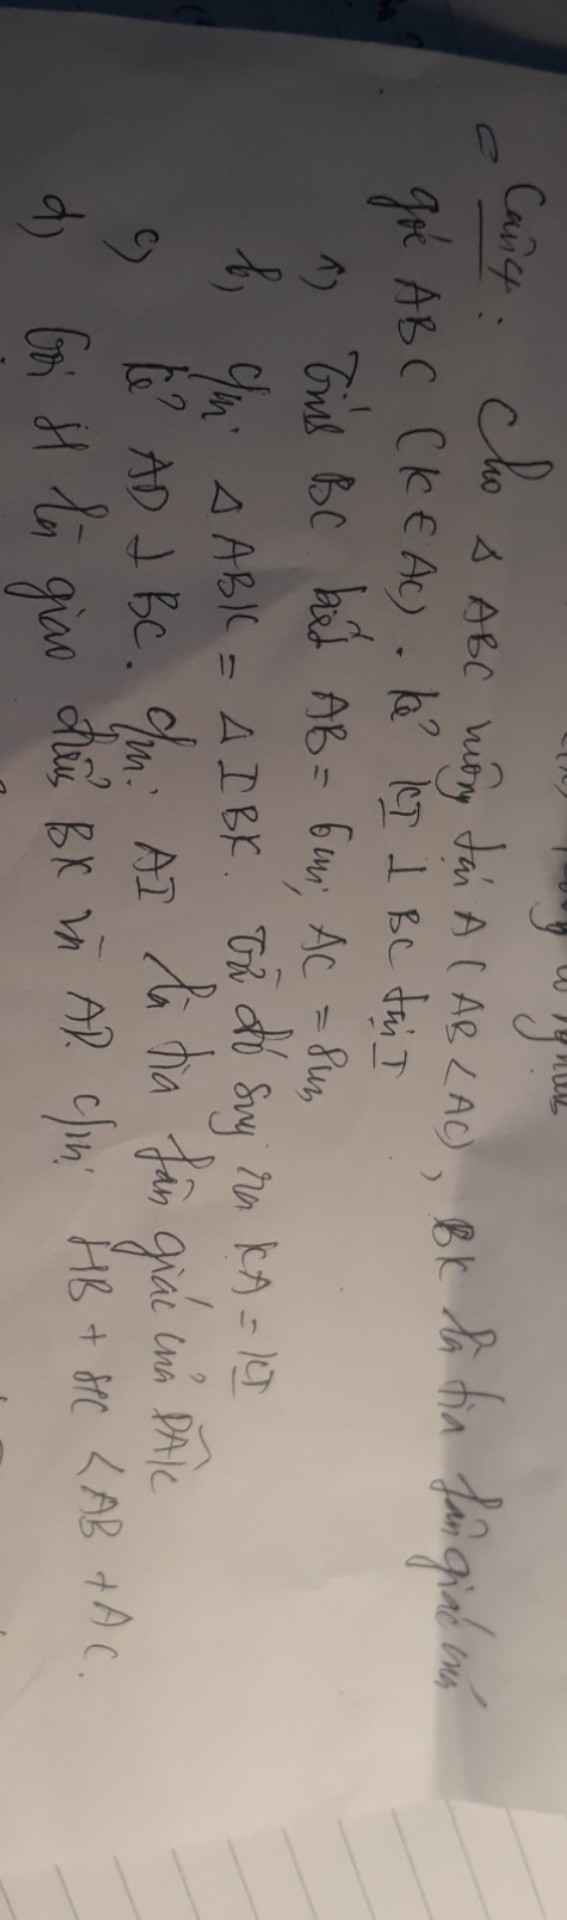 Câu 4: Cho Δ ABC vuông tại A (AB < AC), BK là tia phân giác của
góc ABC (K ∈ AC). kẻ KI ⊥ BC tại I
a) Tính BC biết AB = 6cm, AC = 8cm
b, c/m: Δ ABK = Δ IBK. Từ đó suy ra KA = KI
c, kẻ AD ⊥ BC. c/m: AI là tia phân giác của DAK
d, Gọi H là giao điểm BK và AD. c/m: HB + HC < AB + AC.